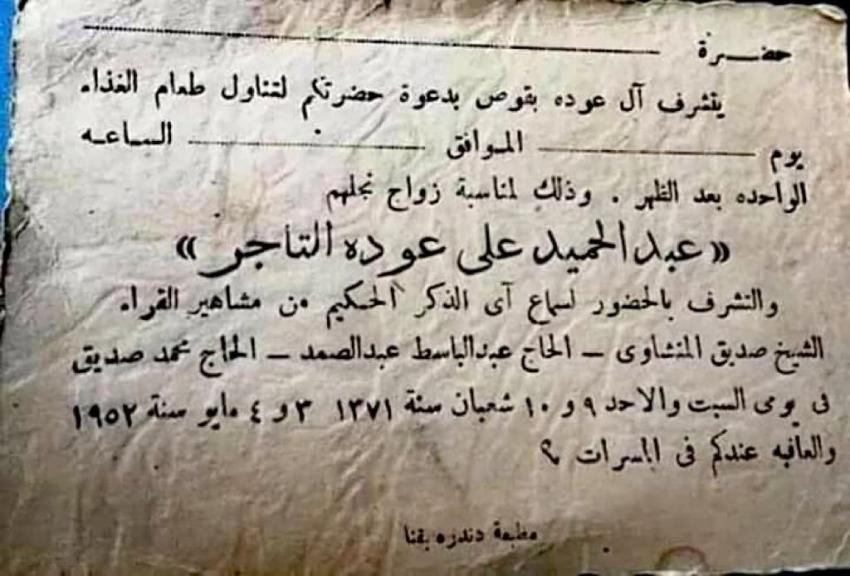 حضـــرة
يتشرف آل عوده بقوص بدعوة حضرتكم لتناول طعام الغذاء
يوم الموافق الساعه
الواحده بعد الظهر . وذلك لمناسبة زواج نجلهم
«عبد الحميد على عوده التاجر»
والتشرف بالحضور لسماع آى الذكر الحكيم من مشاهير القراء
الشيخ صديق المنشاوى – الحاج عبدالباسط عبدالصمد – الحاج محمد صديق
فى يومى السبت والاحد ٩ و ١٠ شعبان سنة ١٣٧١ ٣ و ٤ مايو سنة ١٩٥٢
والعاقبه عندكم فى المسرات
مطبعة دندره بقنا